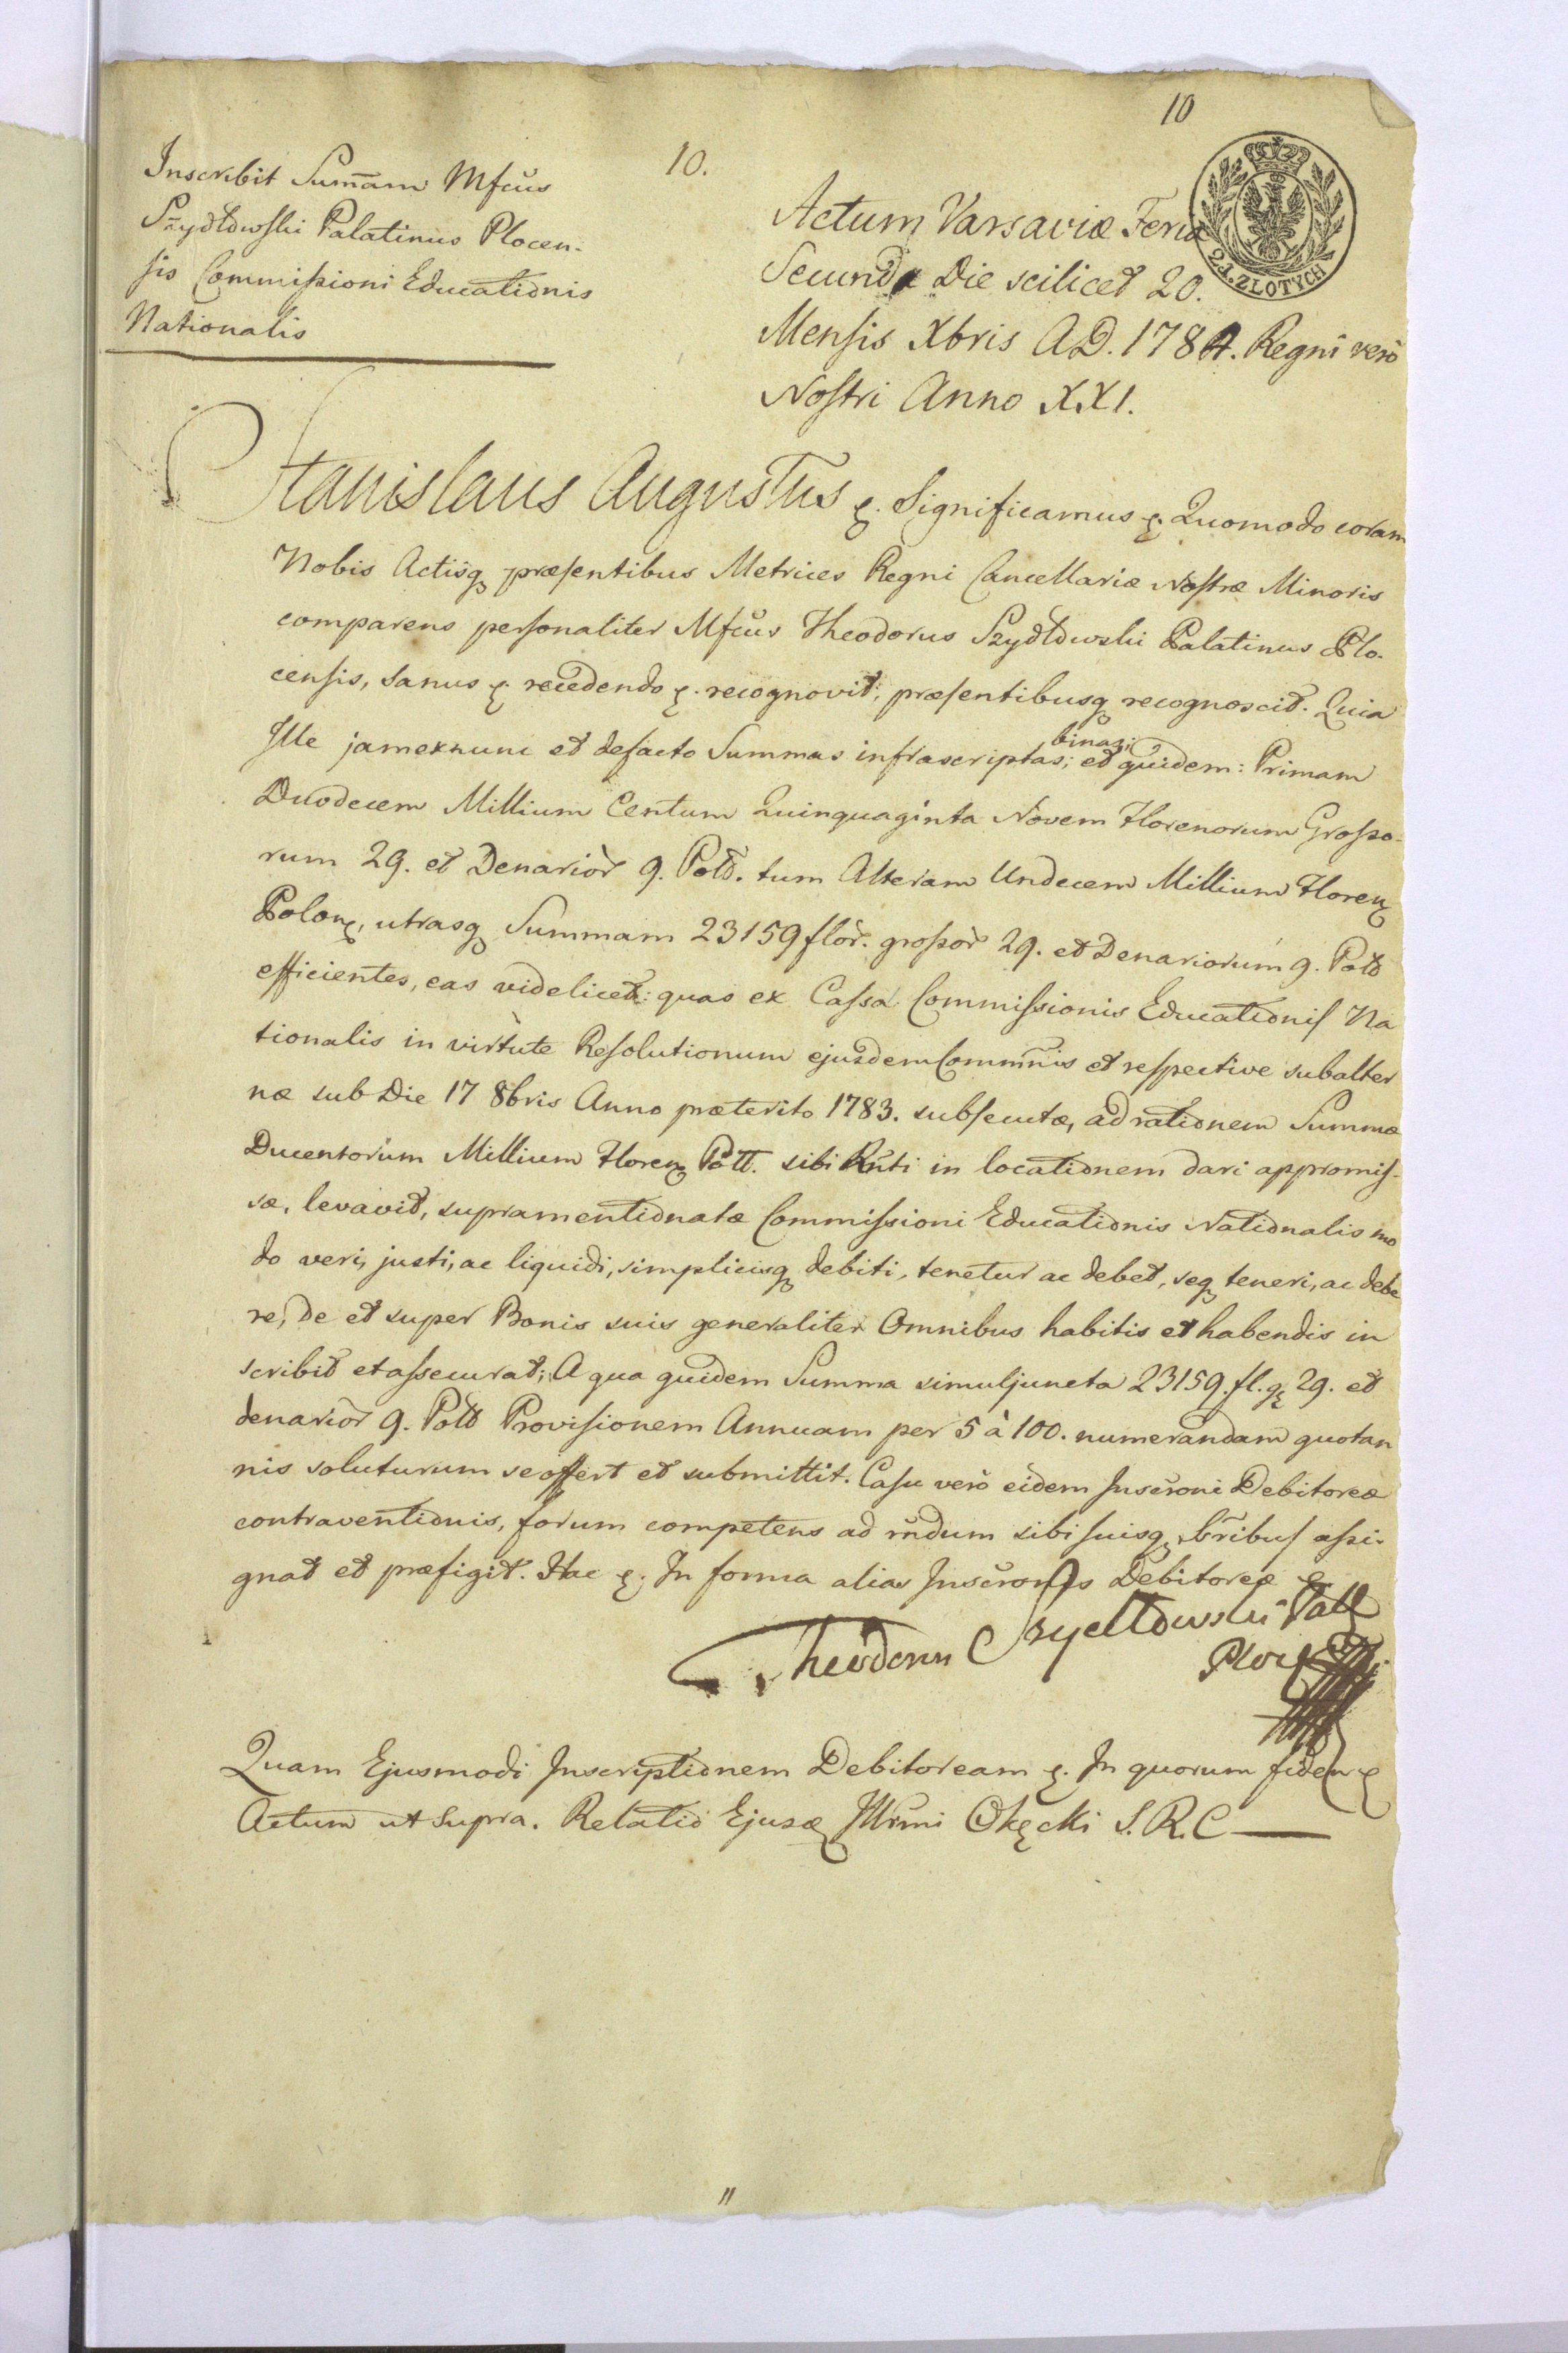 10
10.
Inscribit Sum̃am Mfcus
Szydłowski Palatinus Plocen-
sis Commissioni Educationis
Nationalis
Actum Varsaviæ Feria
Secunda Die scilicet 20.
Mensis Xbris A.D. 1784. Regni verò
Nostri Anno XXI.
2 1. ZŁOTYCH
Stanislaus Augustus &. Significamus &. Quomodo coram
Nobis Actisq præsentibus Metrices Regni Cancellariæ Nostræ Minoris
comparens personaliter Mfcus Theodorus Szydłowski Palatinus Plo-
censis, sanus &. recedendo &. recognovit, præsentibusq recognoscit. Quia
Ille jamexnunc et defacto Summas infrascriptas; binas; et quidem: Primam
Duodecem Millium Centum Quinquaginta Novem Florenorum Grosso-
rum 29. et Denarior 9. Poll. tum Alteram Undecem Millium Floren
Polon, utrasq Summam 23159 flor. grossor 29. et Denariorum 9. Poll
efficientes, eas videlicet: quas ex Cassa Commissionis Educationis Na
tionalis in virtute Resolutionum ejusdem Comm̃nis et respective subalter
næ sub Die 17 8bris Anno præterito 1783. subsecutæ, ad rationem Summæ
Ducentorum Millium Floren Poll. sibi Rñti in locationem dari appromis-
sæ, levavit, supramentionatæ Commissioni Educationis Nationalis mo
do veri, justi, ac liquidi, simplicisq debiti, tenetur ac debet, seq teneri, ac debe
re, de et super Bonis suis generaliter Omnibus habitis et habendis in
scribit et assecurat; A qua quidem Summa simuljuncta 23159. fl. g 29. et
denarior 9. Poll Provisionem Annuam per 5 à 100. numerandam quotan
nis soluturum se offert et submittit. Casu verò eidem Inscroni Debitoreæ
contraventionis, forum competens ad rñdum sibi suisq, sbribus assi-
gnat et præfigit. Hac &. In forma alias Inscronis Debitoreæ &
Theodorus Szydłowski Pall
Ploc
Quam Ejusmodi Inscriptionem Debitoream &. In quorum fidem &
Actum ut supra. Relatio Ejusd Illrmi Okęcki S.R.C
11